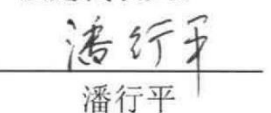 潘行平
潘行平